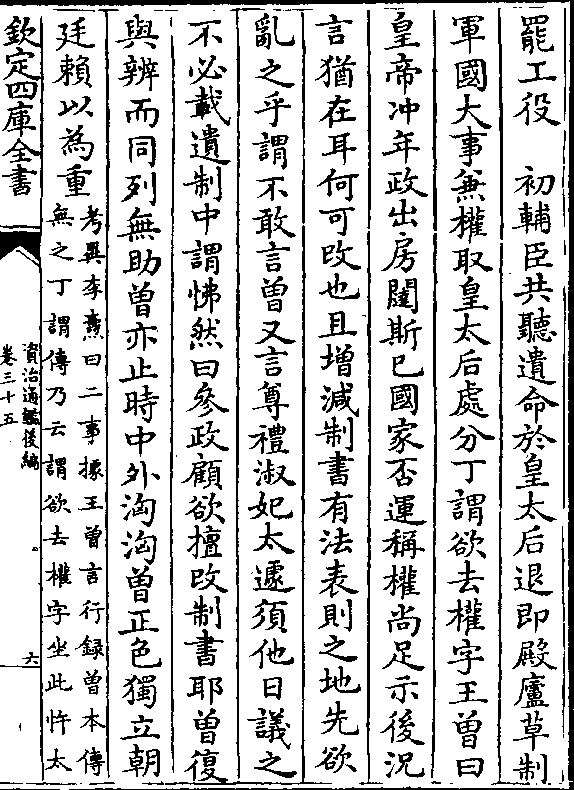 罷工役　初輔臣共聽遺命於皇太后退即殿廬草制
軍國大事兼權取皇太后處分丁謂欲去權字王曾曰
皇帝冲年政出房闥斯已國家否運稱權尚足示後況
言猶在耳何可改也且增減制書有法表則之地先欲
亂之乎謂不敢言曾又言尊禮淑妃太遽須他日議之
不必載遺制中謂怫然曰參政顧欲擅改制書耶曾復
與辨而同列無助曾亦止時中外洶洶曾正色獨立朝
廷賴以為重
考異李燾曰二事據王曾言行録曾本傳
無之丁謂傳乃云謂欲去權字坐此忤太
欽定四庫全書
資治通鑑後編
卷三十五
六